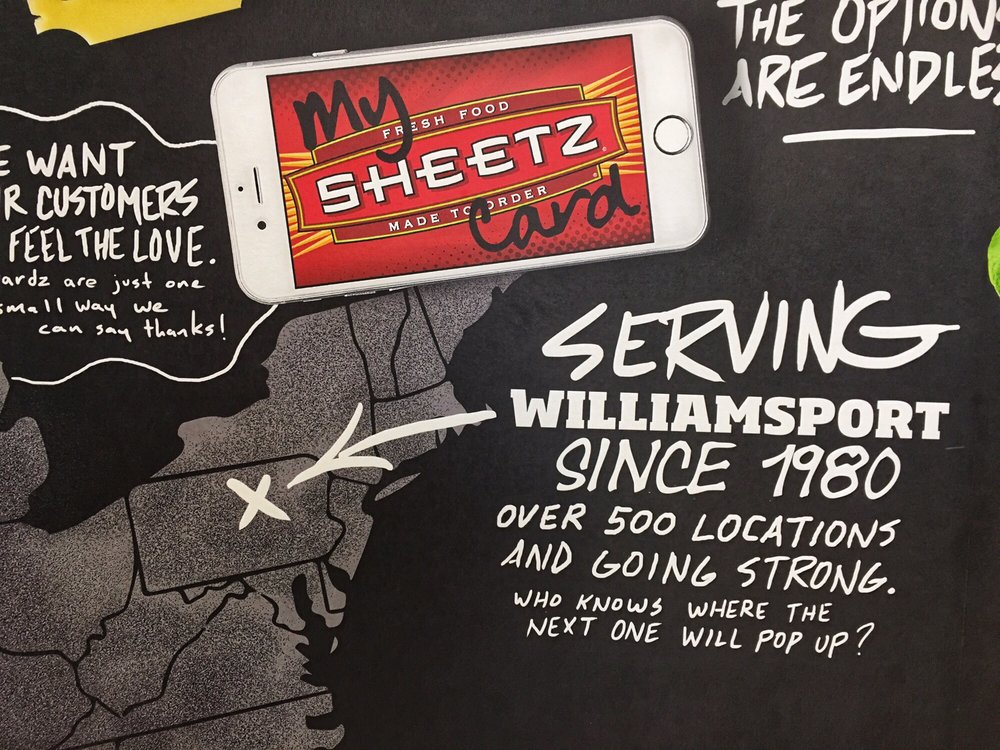 THE OPTION
ARE ENDLES
My
FRESH FOOD
SHEETZ
MADE TO ORDER
Card
E WANT
R CUSTOMERS
FEEL THE LOVE.
ardz are just one
small way we
can say thanks!
SERVING
WILLIAMSPORT
SINCE 1980
OVER 500 LOCATIONS
AND GOING STRONG.
WHO KNOWS WHERE THE
NEXT ONE WILL POP UP?
X